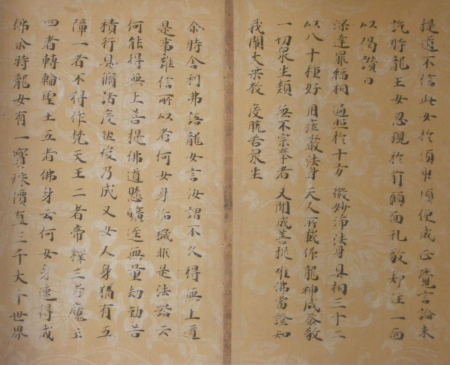 提道不信此女於須臾頃便成正覺言論未
訖時龍王女忽現於前頭面礼敬却住一面
以偈讃曰
深達罪福相 遍照於十方 微妙浄法身 具相三十二
以八十種好 用莊嚴法身 天人所戴仰 龍神咸恭敬
一切衆生類 無不宗奉者 又聞成菩提 唯佛當證知
我闡大乘教 度脱苦衆生
尒時舎利弗語龍女言汝謂不久得無上道
是事難信所以者何女身垢穢非是法器云
何能得無上菩提佛道懸曠逕無量劫勤苦
積行具脩諸度然後乃成又女人身猶有五
障一者不得作梵天王二者帝釋三者魔王
四者轉輪聖王五者佛身云何女身速得成
佛尒時龍女有一寳珠價直三千大千世界